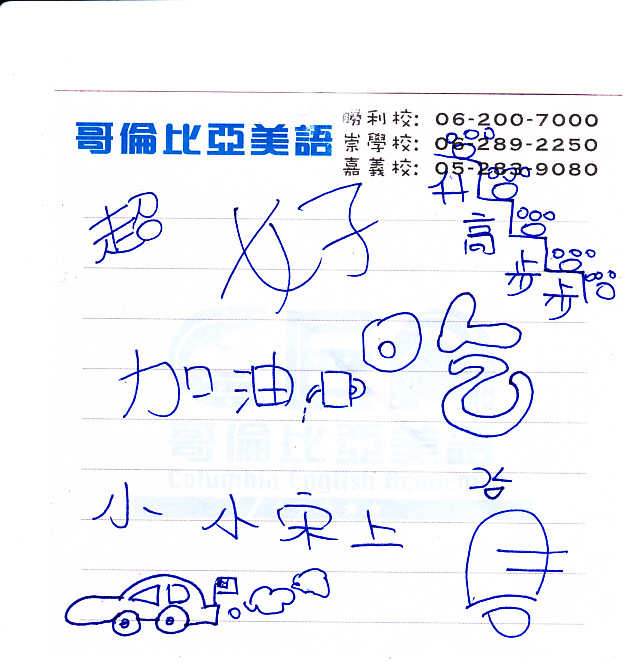 哥倫比亞美語
勝利校: 06-200-7000
崇學校: 06-289-2250
嘉義校: 05-283-9080
超 好
步步高升
加油
小小宋上
哥倫比亞美語
Columbia English Academy